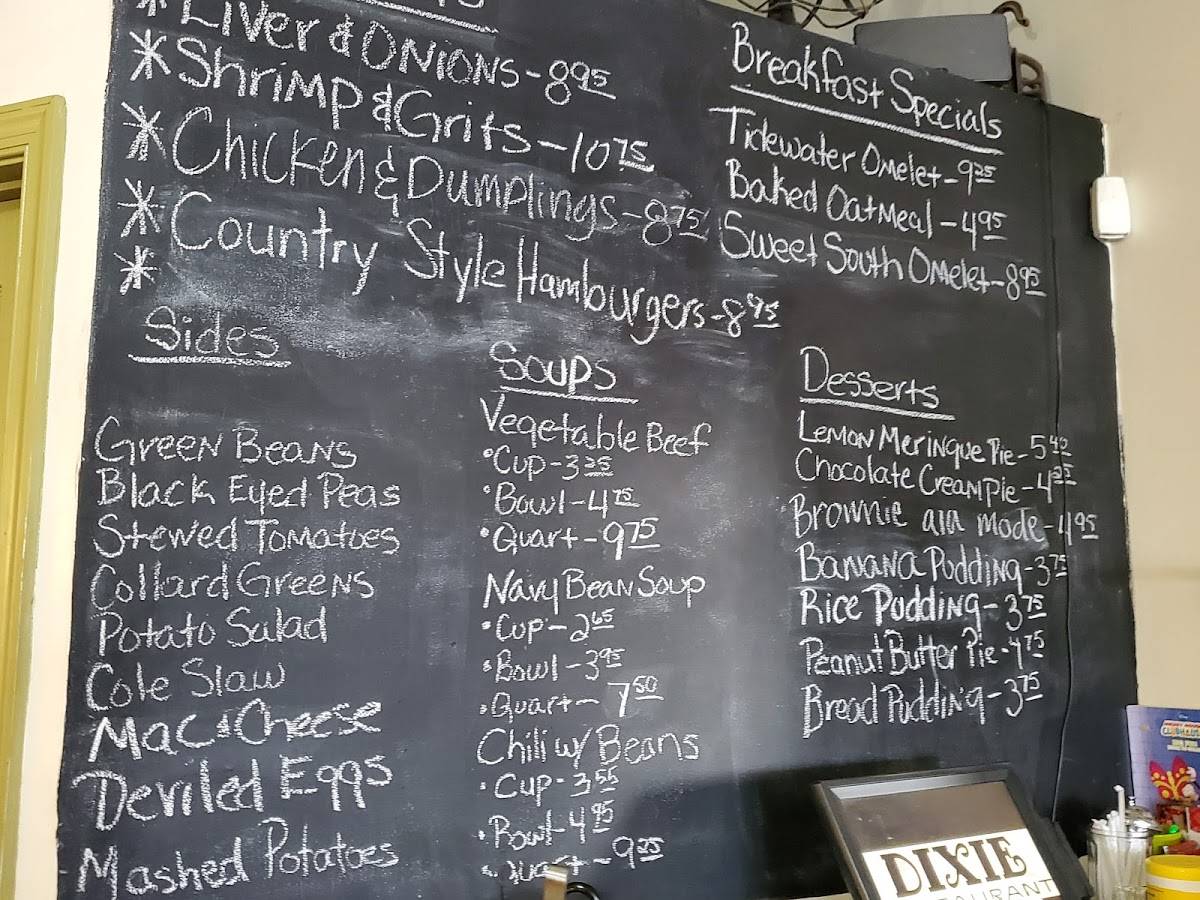 * Liver & Onions - 8 95
* Shrimp & Grits - 10 75
* Chicken & Dumplings - 8 75
* Country Style Hamburgers - 8 95
*
Breakfast Specials
Tidewater Omelet - 9 25
Baked Oatmeal - 4 95
Sweet South Omelet - 8 95
Sides
Green Beans
Black Eyed Peas
Stewed Tomatoes
Collard Greens
Potato Salad
Cole Slaw
Mac & Cheese
Deviled Eggs
Mashed Potatoes
Soups
Vegetable Beef
• Cup - 3 25
• Bowl - 4 75
• Quart - 9 75
Navy Bean Soup
• Cup - 2 65
• Bowl - 3 95
• Quart - 7 50
Chili w/ Beans
• Cup - 3 55
• Bowl - 4 95
• Quart - 9 25
Desserts
Lemon Meringue Pie - 5
Chocolate Cream Pie - 4 25
Brownie ala mode - 4 95
Banana Pudding - 3 75
Rice Pudding - 3 75
Peanut Butter Pie - 4 75
Bread Pudding - 3 75
DIXIE